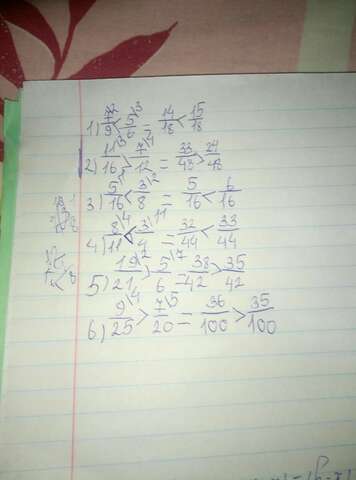 1) 7/9\2 < 5/6\3 = 14/18 < 15/18
2) 11/16\3 > 7/12\4 = 33/43 > 24/48
3) 5/16\1 < 3/8\2 = 5/16 < 6/16
4) 8/11\4 < 3/4\11 = 32/44 < 33/44
5) 19/21\2 > 5/6\7 = 38/42 > 35/42
6) 9/25\4 > 7/20\5 = 36/100 > 35/100